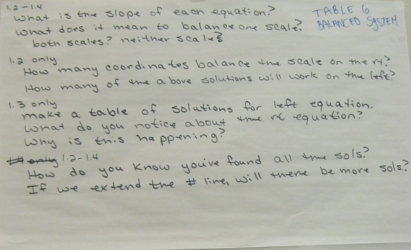 1.2-1.4
What is the slope of each equation?
What does it mean to balance one scale?
both scales? neither scale?
TABLE 6
BALANCED SYSTEM
1.2 only
How many coordinates balance the scale on the rt?
How many of the above solutions will work on the left?
1.3 only
make a table of solutions for left equation.
What do you notice about the rt equation?
Why is this happening?
1.2-1.4
How do you know you've found all the sols?
If we extend the # line, will there be more sols?